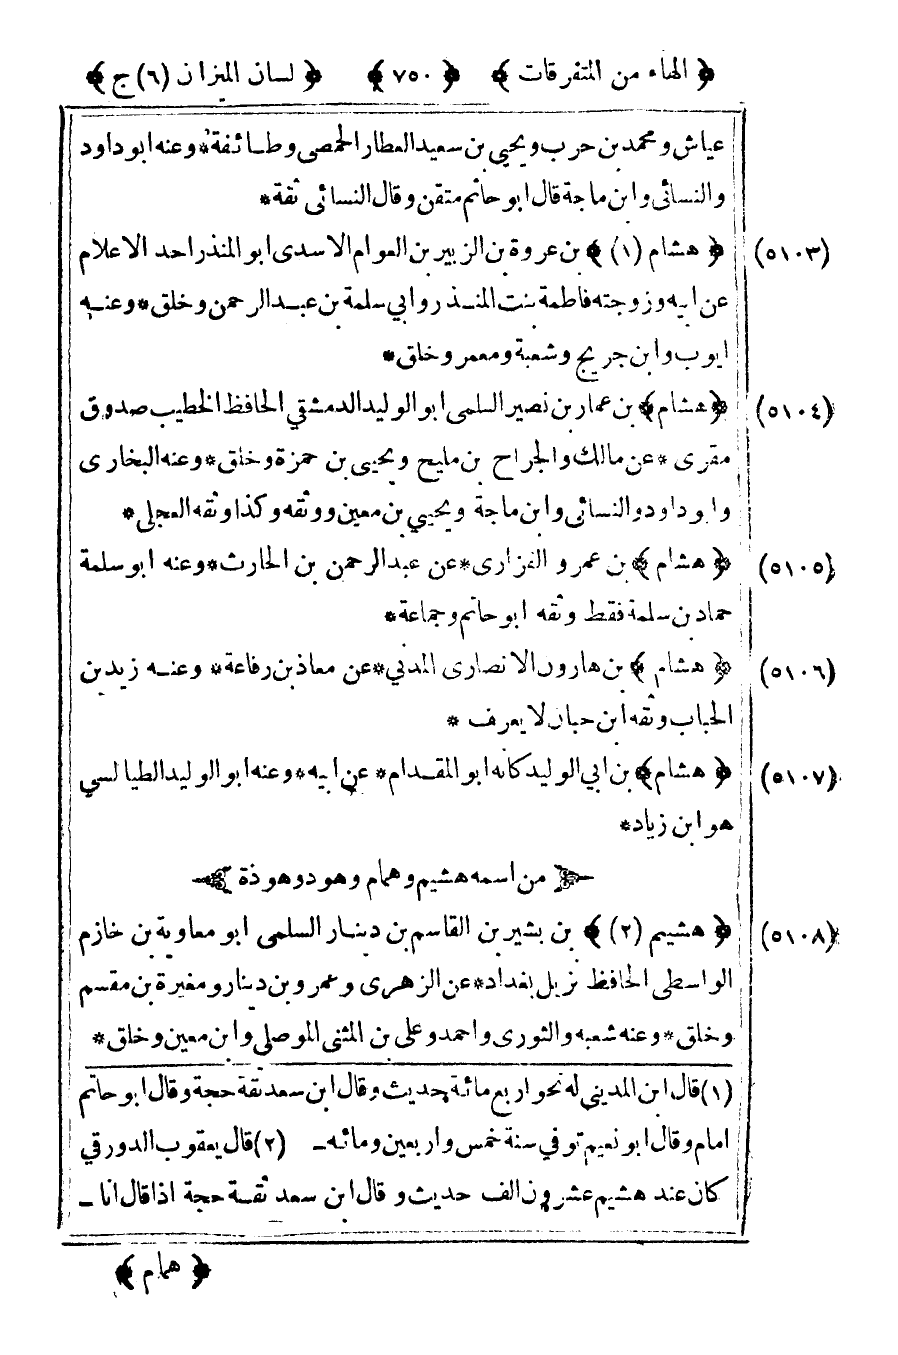 ﴿ الهاء من المتفرقات ﴾ ﴿ ٧٥٠ ﴾ ﴿ لسان الميزان (٦) ج ﴾
عياش ومحمد بن حرب ويحيى بن سعيد العطار الحمصى وطائفة * وعنه ابو داود
والنسائى وابن ماجة قال ابو حاتم متقن وقال النسائى ثقة *
(٥١٠٣) ﴿ هشام (١) ﴾ بن عروة بن الزبير بن العوام الاسدى ابو المنذر احد الاعلام
عن ابيه وزوجته فاطمة بنت المنذر وابي سلمة بن عبد الرحمن وخلق * وعنه
ايوب وابن جريج وشعبة ومعمر وخلق *
(٥١٠٤) ﴿ هشام ﴾ بن عمار بن نصير السلمى ابو الوليد الدمشقي الحافظ الخطيب صدوق
مقرى * عن مالك والجراح بن مليح ويحيى بن حمزة وخلق * وعنه البخارى
وابو داود والنسائى وابن ماجة ويحيى بن معين ووثقه وكذا وثقه العجلى *
(٥١٠٥) ﴿ هشام ﴾ بن عمرو الفزارى * عن عبد الرحمن بن الحارث * وعنه ابو سلمة
حماد بن سلمة فقط وثقه ابو حاتم وجماعة *
(٥١٠٦) ﴿ هشام ﴾ بن هارون الانصارى المدني * عن معاذ بن رفاعة * وعنه زيد بن
الحباب وثقه ابن حبان لا يعرف *
(٥١٠٧) ﴿ هشام ﴾ بن ابي الوليد كانه ابو المقدام * عن ابيه * وعنه ابو الوليد الطيالسي
هو ابن زياد *
﴿ من اسمه هشيم وهمام وهود وهوذة ﴾
(٥١٠٨) ﴿ هشيم (٢) ﴾ بن بشير بن القاسم بن دينار السلمى ابو معاوية بن خازم
الواسطى الحافظ نزيل بغداد * عن الزهرى وعمرو بن دينار ومغيرة بن مقسم
وخلق * وعنه شعبه والثورى واحمد وعلى بن المثنى الموصلي وابن معين وخلق *
(١) قال ابن المديني له نحو اربع مائة حديث وقال ابن سعد ثقة حجة وقال ابو حاتم
امام وقال ابو نعيم توفي سنة خمس واربعين ومائه ـ (٢) قال يعقوب الدورقي
كان عند هشيم عشرون الف حديث وقال ابن سعد ثقة حجة اذا قال انا ـ
﴿ همام ﴾